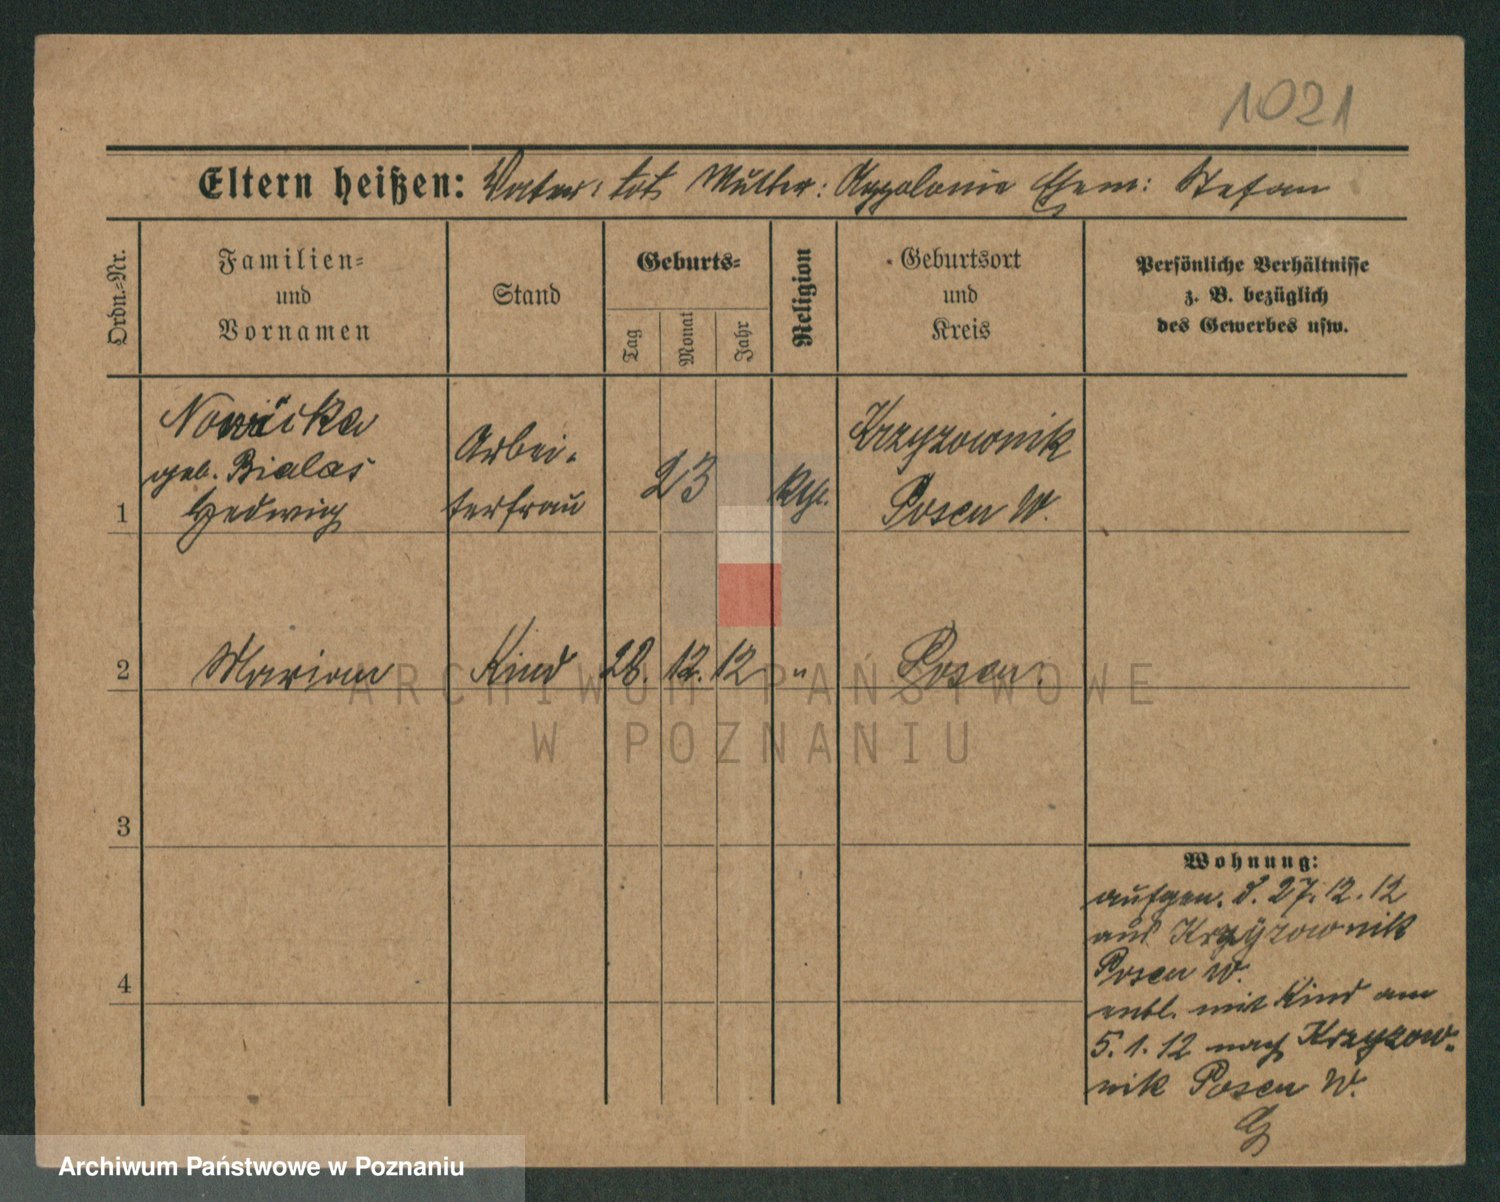 1021
Eltern heißen: Vater: tot, Mutter: Appolonia Ehem: Stefan
Ordn.-Nr.
Familien-
und
Vornamen
Stand
Geburts-
Tag
Monat
Jahr
Religion
Geburtsort
und
Kreis
Persönliche Verhältnisse
z. B. bezüglich
des Gewerbes usw.
1
Nowicka
geb. Bialas
Hedwig
Arbei-
terfrau
23
kth.
Krzyzownik
Posen W.
2
Marian
Kind
28. 12. 12
"
Posen.
3
4
Wohnung:
aufgen. d. 27.12.12
aus Krzyzownik
Posen W.
entl. mit Kind am
5.1.12 nach Krzyzow-
nik Posen W.
ARCHIWUM PAŃSTWOWE
W POZNANIU
Archiwum Państwowe w Poznaniu